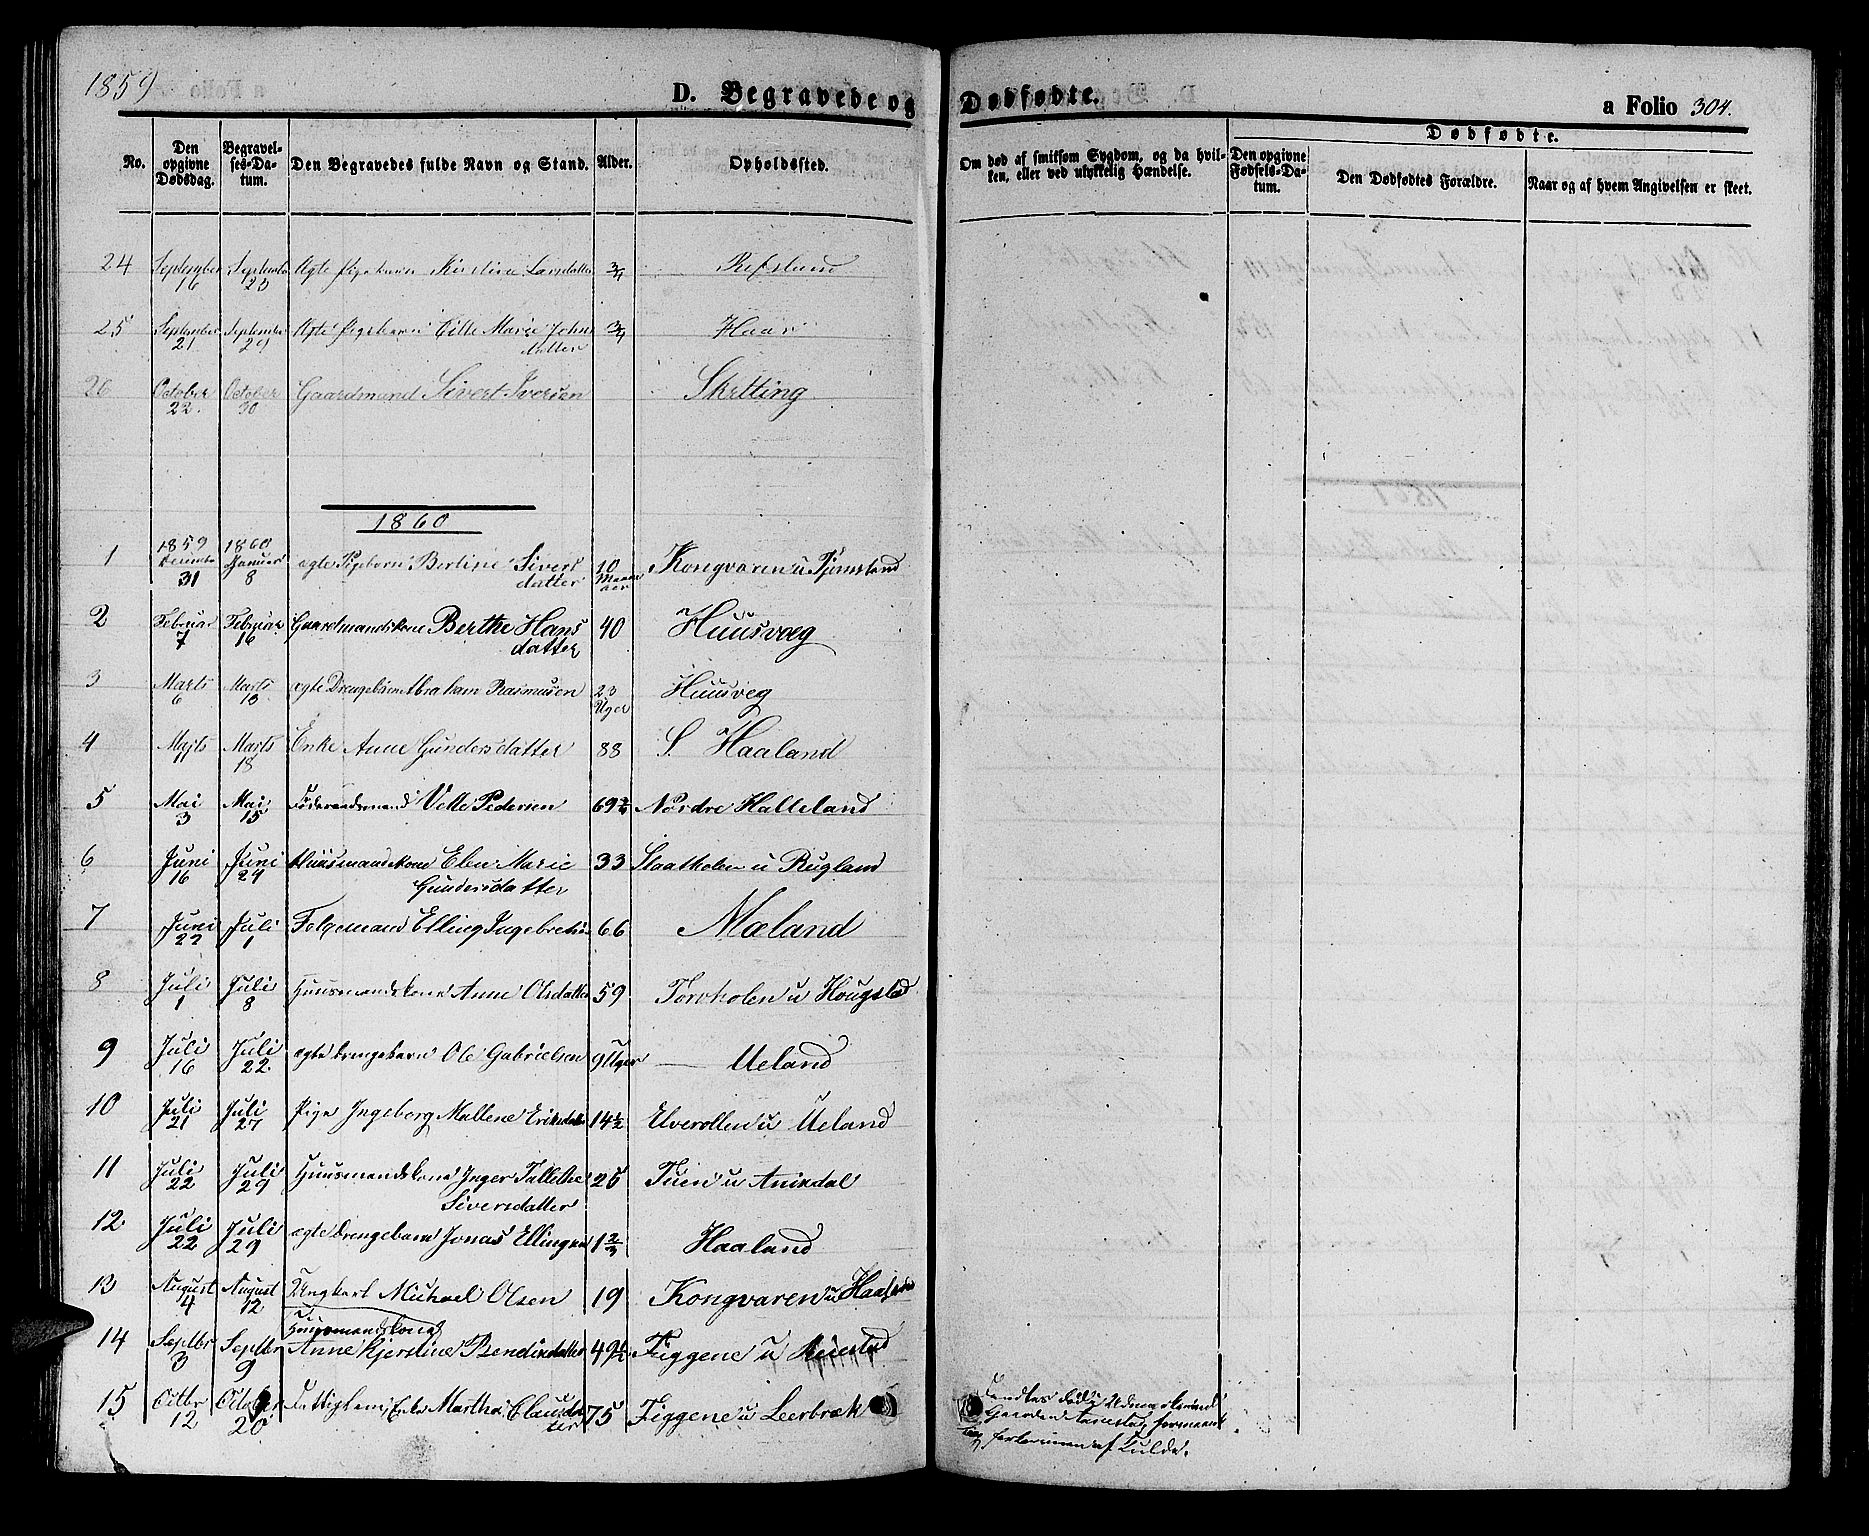 1859
D. Begravede og Dødfødte.
a Folio 304.
No.
Den opgivne Dødsdag.
Begravelses-Datum.
Den Begravedes fulde Navn og Stand.
Alder.
Opholdssted.
Om død af smitsom Sygdom, og da hvilken, eller ved ulykkelig Hændelse.
Dødfødte.
Den opgivne Fødsels-Datum.
Den Dødfødtes Forældre.
Naar og af hvem Angivelsen er skeet.
24 September 16 Septembr 23 Ægte Pigebarn Kirstine Larsdatter 3/4 Refsland
25 September 21 September 29 Ægte Pigebarn Marie Johns datter 3/4 Haar
26 October 22. October 30 Gaardmand Sivert Iversen Skretting
1860
1 1859 Decembr 31 1860 Januar 8 ægte Pigebarn Bertine Siverts datter 10 Maaneder Kongvaren u
2 Februar 7 Februar 16 Gaardmandskone Berthe Hans datter 40 Huusvæg
3 Marts 6 Marts 13 ægte Drengebarn Abraham Rasmusen 23 Uger Huusveg
4 Marts 11 Marts 18 Enke Anne Gundersdatter 88 S. Haaland
5 Mai 3 Mai 15 Føderaadsmand Pedersen 69 Nordre Halleland
6 Juni 16 Juni 24 Huusmandskone Elen Marie Gundersdatter 33 u Rugland
7 Juni 22 Juli 1 Elling Ingebretsen 66 Mæland
8 Juli 1 Juli 8 Huusmandskone Anne Olsdatter 59 Torvholen u Hougstad
9 Juli 16 Juli 22 ægte Drengebarn Ole Gabrielsen 9 Uger Ueland
10 Juli 21 Juli 27 Pige Ingeborg Mallene Eriksdatter 14 1/2 u Ueland
11 Juli 22 Juli 29 Huusmandskone Inger Tallethe Siversdatter 25 Tuen u Anisdal
12 Juli 22 Juli 29 ægte Drengebarn Jonas Ellingsen 1 2/3 Haaland
13 August 4 August 12 Ungkarl Michael Olsen 19 Kongvaren u Haaland
14 Septbr 3 Septbr 9 Huusmandskone Anne Kjerstine Bendixdatter 49 1/2 Figgene u
15 Octbr 12 October 20 Fattiglem, Enke Martha Clausdatter 75 Figgene u Leerbræk
Fandtes død i Udmarken ved
Gaarden
omkommen af Kulde.